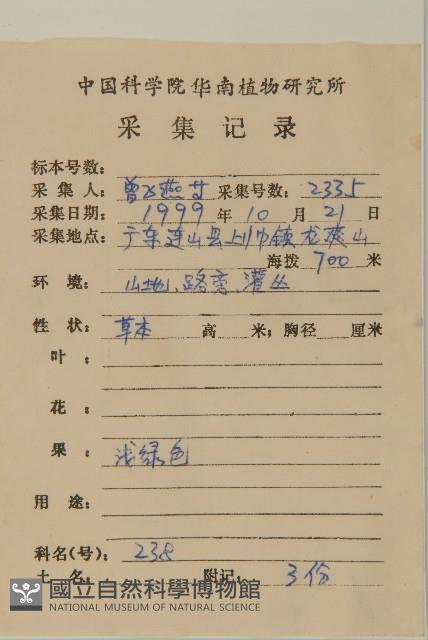 中国科学院华南植物研究所
采集记录
标本号数：
采集人：曾飞燕 采集号数：2335
采集日期：1999年10月21日
采集地点：广东连山县上帅镇龙 山
海拨700米
环境：山地、路旁、灌丛
性状：草本 高 米；胸径 厘米
叶：
花：
果：浅绿色
用途：
科名(号)：238
土名： 附记：3份
國立自然科學博物館
NATIONAL MUSEUM OF NATURAL SCIENCE